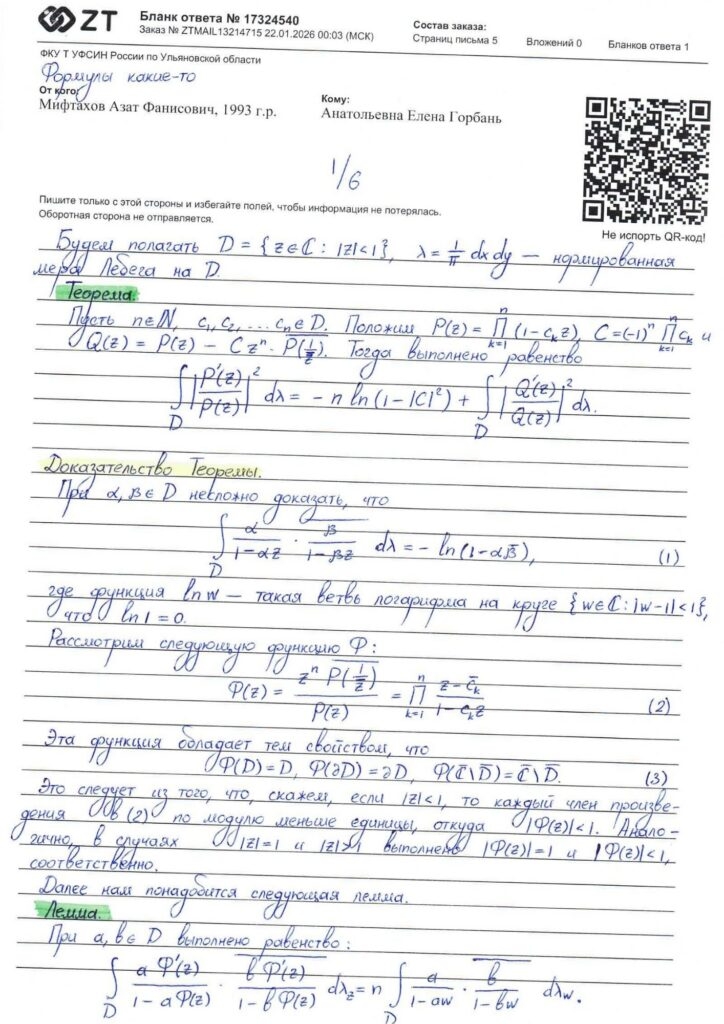 ZT
Бланк ответа № 17324540
Заказ № ZTMAIL13214715 22.01.2026 00:03 (МСК)
Состав заказа:
Страниц письма 5 Вложений 0 Бланков ответа 1
ФКУ Т УФСИН России по Ульяновской области
Формулы какие-то
От кого:
Мифтахов Азат Фанисович, 1993 г.р.
Кому:
Анатольевна Елена Горбань
1/6
Пишите только с этой стороны и избегайте полей, чтобы информация не потерялась.
Оборотная сторона не отправляется.
Не испорть QR-код!
Будем полагать D = {z∈ℂ : |z|<1}, λ = 1/π dxdy — нормированная
мера Лебега на D.
Теорема.
Пусть n∈ℕ, c₁, c₂, ... cₙ∈D. Положим P(z) = ∏ₖ₌₁ⁿ (1-cₖz), C=(-1)ⁿ ∏ₖ₌₁ⁿ cₖ и
Q(z) = P(z) - Czⁿ · \overline{P(1/\overline{z})}. Тогда выполнено равенство
∫_D |P'(z)/P(z)|² dλ = - n ln(1-|C|²) + ∫_D |Q'(z)/Q(z)|² dλ.
Доказательство Теоремы.
При α, β∈D несложно доказать, что
∫_D α/(1-αz) · \overline{β/(1-βz)} dλ = - ln(1-α\overline{β}), (1)
где функция ln w — такая ветвь логарифма на круге {w∈ℂ: |w-1|<1},
что ln 1 = 0.
Рассмотрим следующую функцию Φ:
Φ(z) = zⁿ \overline{P(1/\overline{z})} / P(z) = ∏ₖ₌₁ⁿ (z-\overline{c}ₖ)/(1-cₖz) (2)
Эта функция обладает тем свойством, что
Φ(D)=D, Φ(∂D)=∂D, Φ(\overline{ℂ}\\\overline{D})=\overline{ℂ}\\\overline{D}. (3)
Это следует из того, что, скажем, если |z|<1, то каждый член произве-
дения в (2) по модулю меньше единицы, откуда |Φ(z)|<1. Анало-
гично, в случаях |z|=1 и |z|>1 выполнено |Φ(z)|=1 и |Φ(z)|<1,
соответственно.
Далее нам понадобится следующая лемма.
Лемма.
При a, b∈D выполнено равенство:
∫_D aΦ'(z)/(1-aΦ(z)) · \overline{bΦ'(z)/(1-bΦ(z))} dλ_z = n ∫_D a/(1-aw) · \overline{b/(1-bw)} dλ_w.